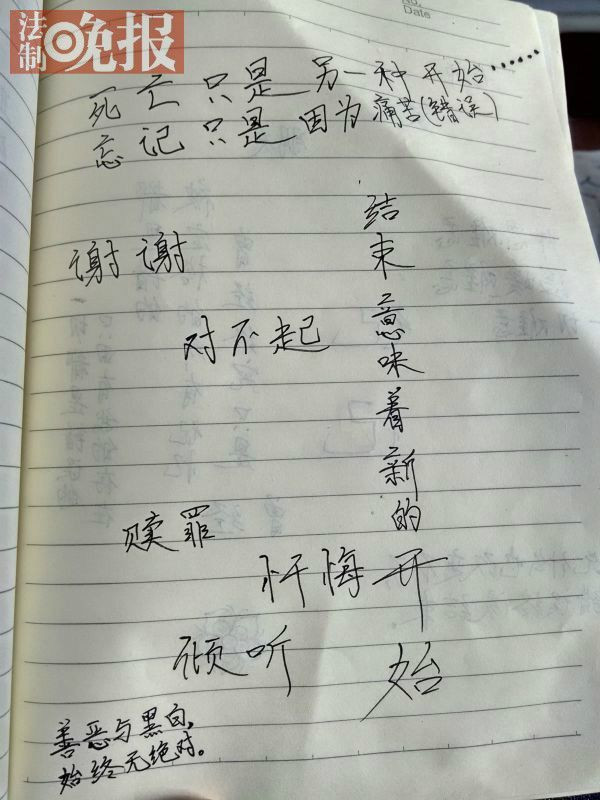 法制晚报
No.
Date
死亡只是另一种开始……
忘记只是因为痛苦(错误)
谢谢
对不起
结束意味着新的开始
赎罪
忏悔
倾听
善恶与黑白,
始终无绝对。